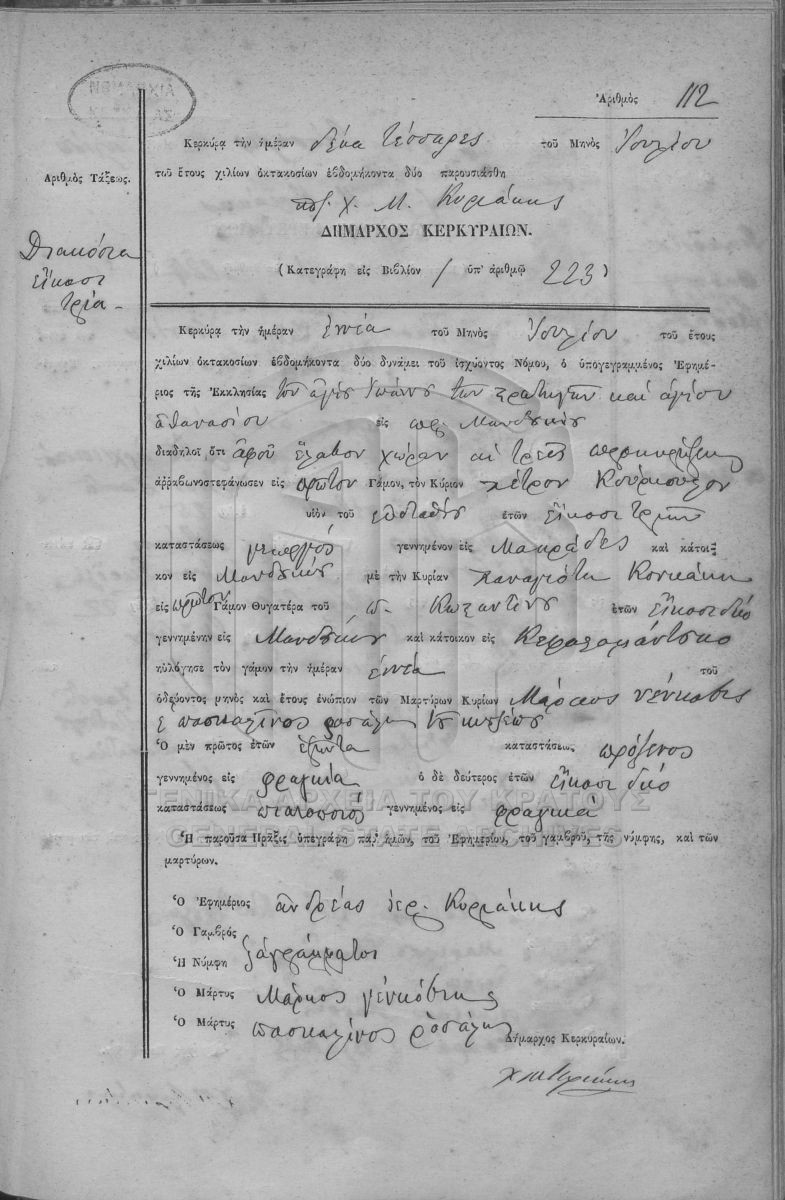 Ἀριθμὸς 112
Κερκύρᾳ τὴν ἡμέραν δέκα τέσσαρες τοῦ Μηνὸς Ἰουλίου
τοῦ ἔτους χιλίων ὀκτακοσίων ἑβδομήκοντα δύο παρουσιάσθη
Χ. Μ. Κυριάκης
ΔΗΜΑΡΧΟΣ ΚΕΡΚΥΡΑΙΩΝ.
(Κατεγράφη εἰς Βιβλίον 1 ὑπ' ἀριθμῷ 223)
Ἀριθμὸς Τάξεως.
Διακόσια
εἴκοσι
τρία
Κερκύρᾳ τὴν ἡμέραν ἐννέα τοῦ Μηνὸς Ἰουλίου τοῦ ἔτους
χιλίων ὀκτακοσίων ἑβδομήκοντα δύο δυνάμει τοῦ ἰσχύοντος Νόμου, ὁ ὑπογεγραμμένος Ἐφημέ-
ριος τῆς Ἐκκλησίας τοῦ ἁγίου Ἰωάννου τῶν καὶ ἁγίου
ἀθανασίου εἰς Μανδουκίου
διαδηλοῖ ὅτι ἀφοῦ ἔλαβον χώραν αἱ τρεῖς προκηρύξεις
ἀῤῥαβωνοστεφάνωσεν εἰς πρῶτον Γάμον, τὸν Κύριον πέτρον Κούρκουλον
υἱὸν τοῦ ἐτῶν εἴκοσι τριῶν
καταστάσεως γεωργός γεννημένον εἰς Μακράδες καὶ κάτοι-
κον εἰς Μανδουκίου μὲ τὴν Κυρίαν παναγιότα
εἰς πρῶτον Γάμον Θυγατέρα τοῦ π. ἐτῶν εἴκοσι δύο
γεννημένην εἰς Μανδουκίου καὶ κάτοικον εἰς
ηὐλόγησε τὸν γάμον τὴν ἡμέραν ἐννέα τοῦ
ὁδεύοντος μηνὸς καὶ ἔτους ἐνώπιον τῶν Μαρτύρων Κυρίων Μάρκος
πασκαλίνος ροσάλης
Ὁ μὲν πρῶτος ἐτῶν ἑξῆντα καταστάσεως πρόξενος
γεννημένος εἰς φραγκία ὁ δὲ δεύτερος ἐτῶν εἴκοσι δύο
καταστάσεως γεννημένος εἰς φραγκιά
Ἡ παροῦσα Πρᾶξις ὑπεγράφη παρ' ἡμῶν, τοῦ Ἐφημερίου, τοῦ γαμβροῦ, τῆς νύμφης, καὶ τῶν
μαρτύρων.
Ὁ Ἐφημέριος ἀνδρέας ἱερ. Κυριάκης
Ὁ Γαμβρὸς
Ἡ Νύμφη ἀγράμματοι
Ὁ Μάρτυς Μάρκος
Ὁ Μάρτυς πασκαλίνος ροσάλης
Δήμαρχος Κερκυραίων.
Χ Μ Κυριάκης
ΓΕΝΙΚΑ ΑΡΧΕΙΑ ΤΟΥ ΚΡΑΤΟΥΣ
GENERAL STATE ARCHIVES